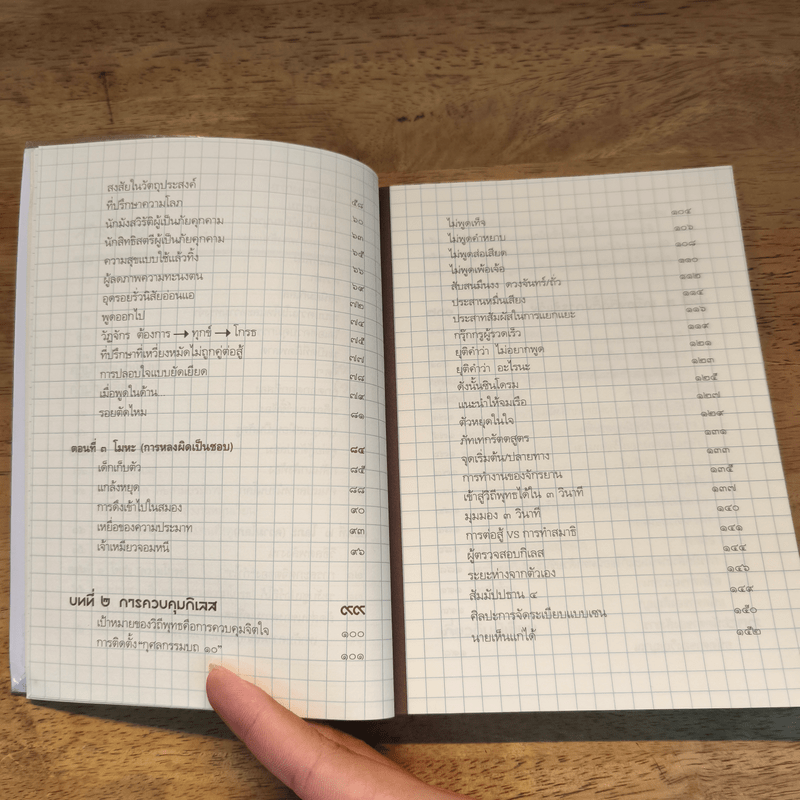 สงสัยในวัตถุประสงค์ ๕๘
ที่ปรึกษาความโลภ ๖๐
นักมังสวิรัติผู้เป็นภัยคุกคาม ๖๓
นักสิทธิสตรีผู้เป็นภัยคุกคาม ๖๕
ความสุขแบบใช้แล้วทิ้ง ๖๖
ผู้ลดภาพความทะนงตน ๖๙
อุดรอยรั่วนิสัยอ่อนแอ ๗๒
พูดออกไป ๗๔
วัฏจักร ต้องการ → ทุกข์ → โกรธ ๗๕
ที่ปรึกษาที่เหวี่ยงหมัดไม่ถูกคู่ต่อสู้ ๗๗
การปลอบใจแบบยัดเยียด ๗๘
เมื่อพูดในด้าน ๗๙
รอยตัดไหม ๘๑
ตอนที่ ๓ โมหะ (การหลงผิดเป็นชอบ) ๘๔
เด็กเก็บตัว ๘๕
แกล้งหยุด ๘๘
การดึงเข้าไปในสมอง ๙๐
เหยื่อของความประมาท ๙๓
เจ้าเหมียวจอมหนี ๙๖
บทที่ ๒ การควบคุมกิเลส ๙๙
เป้าหมายของวิถีพุทธคือการควบคุมจิตใจ ๑๐๐
การติดตั้ง"กุศลกรรมบถ ๑๐" ๑๐๑
ไม่พูดเท็จ ๑๐๔
ไม่พูดคำหยาบ ๑๐๖
ไม่พูดส่อเสียด ๑๐๘
ไม่พูดเพ้อเจ้อ ๑๑๐
สับสนมึนงง ดวงจันทร์/ถั่ว ๑๑๒
ประสานหมื่นเสียง ๑๑๔
ประสาทสัมผัสในการแยกแยะ ๑๑๖
กรุ๊กกรูผู้รวดเร็ว ๑๑๙
ยุติคำว่า ไม่อยากพูด ๑๒๑
ยุติคำว่า อะไรนะ ๑๒๓
ดังนั้นซินโดรม ๑๒๕
แนะนำให้จมเรือ ๑๒๗
ตัวหยุดในใจ ๑๒๙
ภัทเทกรัตตสูตร ๑๓๑
จุดเริ่มต้น/ปลายทาง ๑๓๓
การทำงานของจักรยาน ๑๓๕
เข้าสู่วิถีพุทธได้ใน ๓ วินาที ๑๓๗
มุมมอง ๓ วินาที ๑๔๐
การต่อสู้ VS การทำสมาธิ ๑๔๑
ผู้ตรวจสอบกิเลส ๑๔๔
ระยะห่างจากตัวเอง ๑๔๖
สัมมัปปธาน ๔ ๑๔๙
ศิลปะการจัดระเบียบแบบเซน ๑๕๐
นายเห็นแก่ได้ ๑๕๒